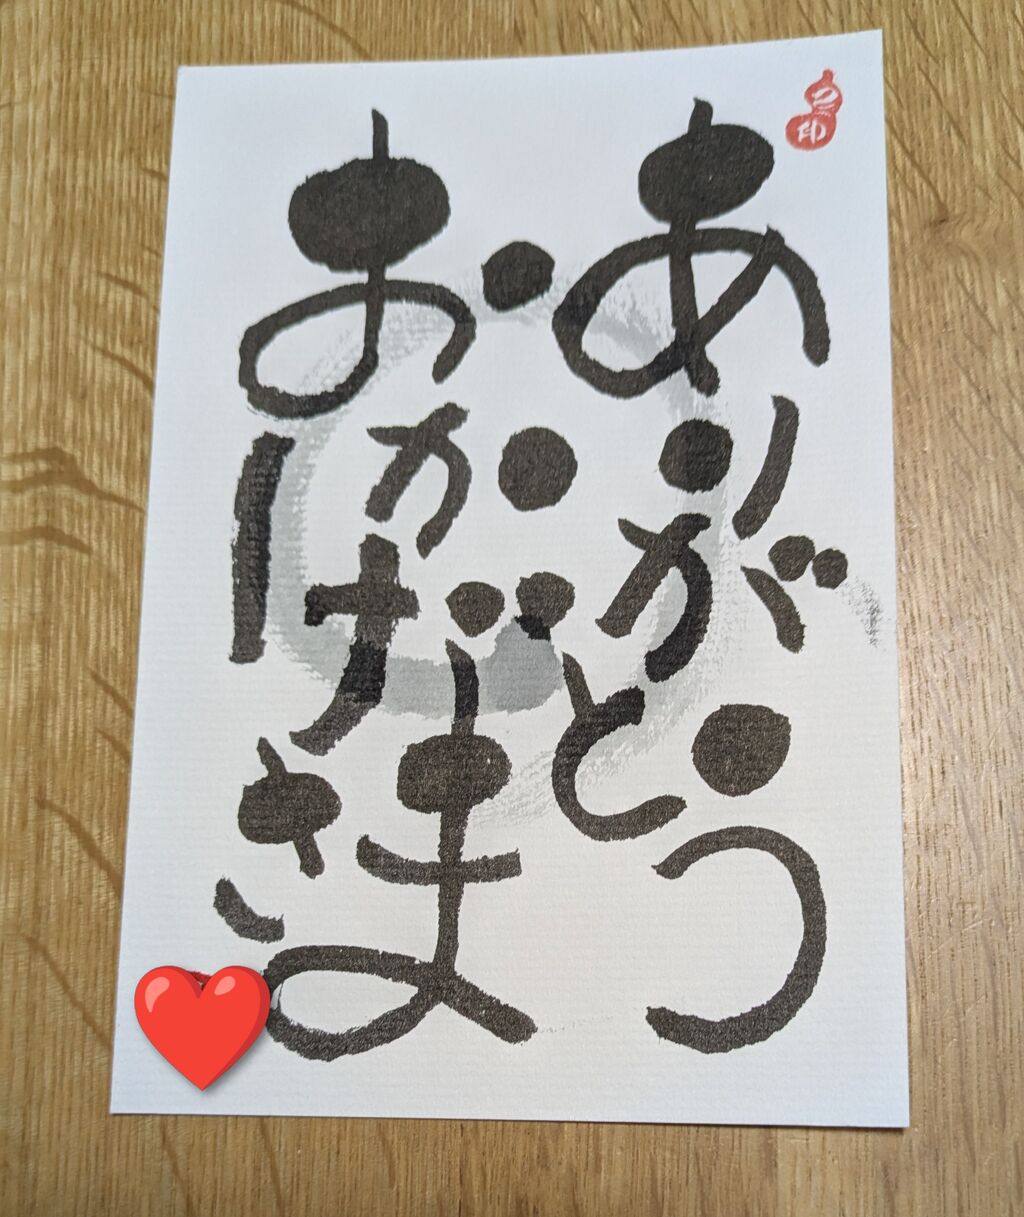 ありがとう
おかげさま
印